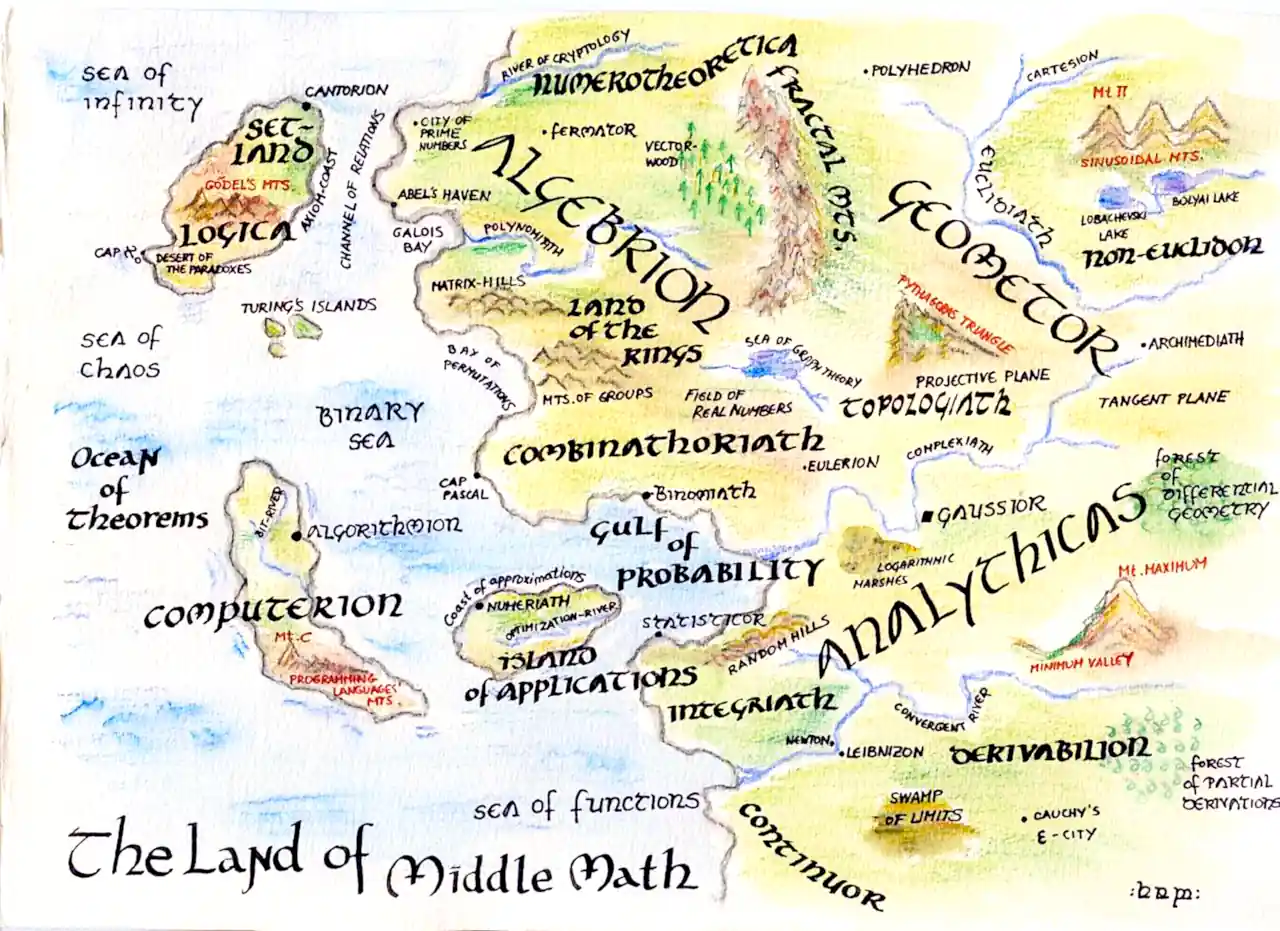 SEA OF
INFINITY
CANTORION
SET-
LAND
GÖDEL'S MTS.
LOGICA
AXIOM-COAST
CHANNEL OF RELATIONS
CAP
DESERT OF
THE PARADOXES
TURING'S ISLANDS
SEA OF
CHAOS
BINARY
SEA
OCEAN
OF
THEOREMS
RIVER OF CRYPTOLOGY
NUMEROTHEORETICA
CITY OF
PRIME
NUMBERS
FERMATOR
VECTOR-
WOOD
FRACTAL MTS.
ALGEBRION
ABEL'S HAVEN
GALOIS
BAY
POLYNOMIATH
MATRIX-HILLS
LAND
OF THE
RINGS
BAY OF
PERMUTATIONS
MTS. OF GROUPS
FIELD OF
REAL NUMBERS
SEA OF GRAPH THEORY
POLYHEDRON
CARTESION
Mt. Π
SINUSOIDAL MTS.
EUCLIDIATH
LOBACHEVSKI
LAKE
BOLYAI LAKE
NON-EUCLIDON
GEOMETOR
PYTHAGORAS TRIANGLE
PROJECTIVE PLANE
ARCHIMEDIATH
TANGENT PLANE
TOPOLOGIATH
COMBINATHORIATH
EULERION
COMPLEXIATH
CAP
PASCAL
BINOMIATH
GULF
OF
PROBABILITY
GAUSSIOR
FOREST
OF
DIFFERENTIAL
GEOMETRY
LOGARITHMIC
MARSHES
ANALYTHICAS
Mt. MAXIMUM
MINIMUM VALLEY
BIT-RIVER
ALGORITHMION
COMPUTERION
Mt. C
PROGRAMMING
LANGUAGES'
MTS.
COAST OF APPROXIMATIONS
NUMERIATH
OPTIMIZATION-RIVER
ISLAND
OF APPLICATIONS
STATISTICOR
RANDOM HILLS
INTEGRIATH
NEWTON
LEIBNIZON
CONVERGENT RIVER
DERIVABILION
FOREST
OF PARTIAL
DERIVATIONS
SWAMP
OF LIMITS
CAUCHY'S
ε-CITY
SEA OF FUNCTIONS
CONTINUOR
The Land of Middle Math